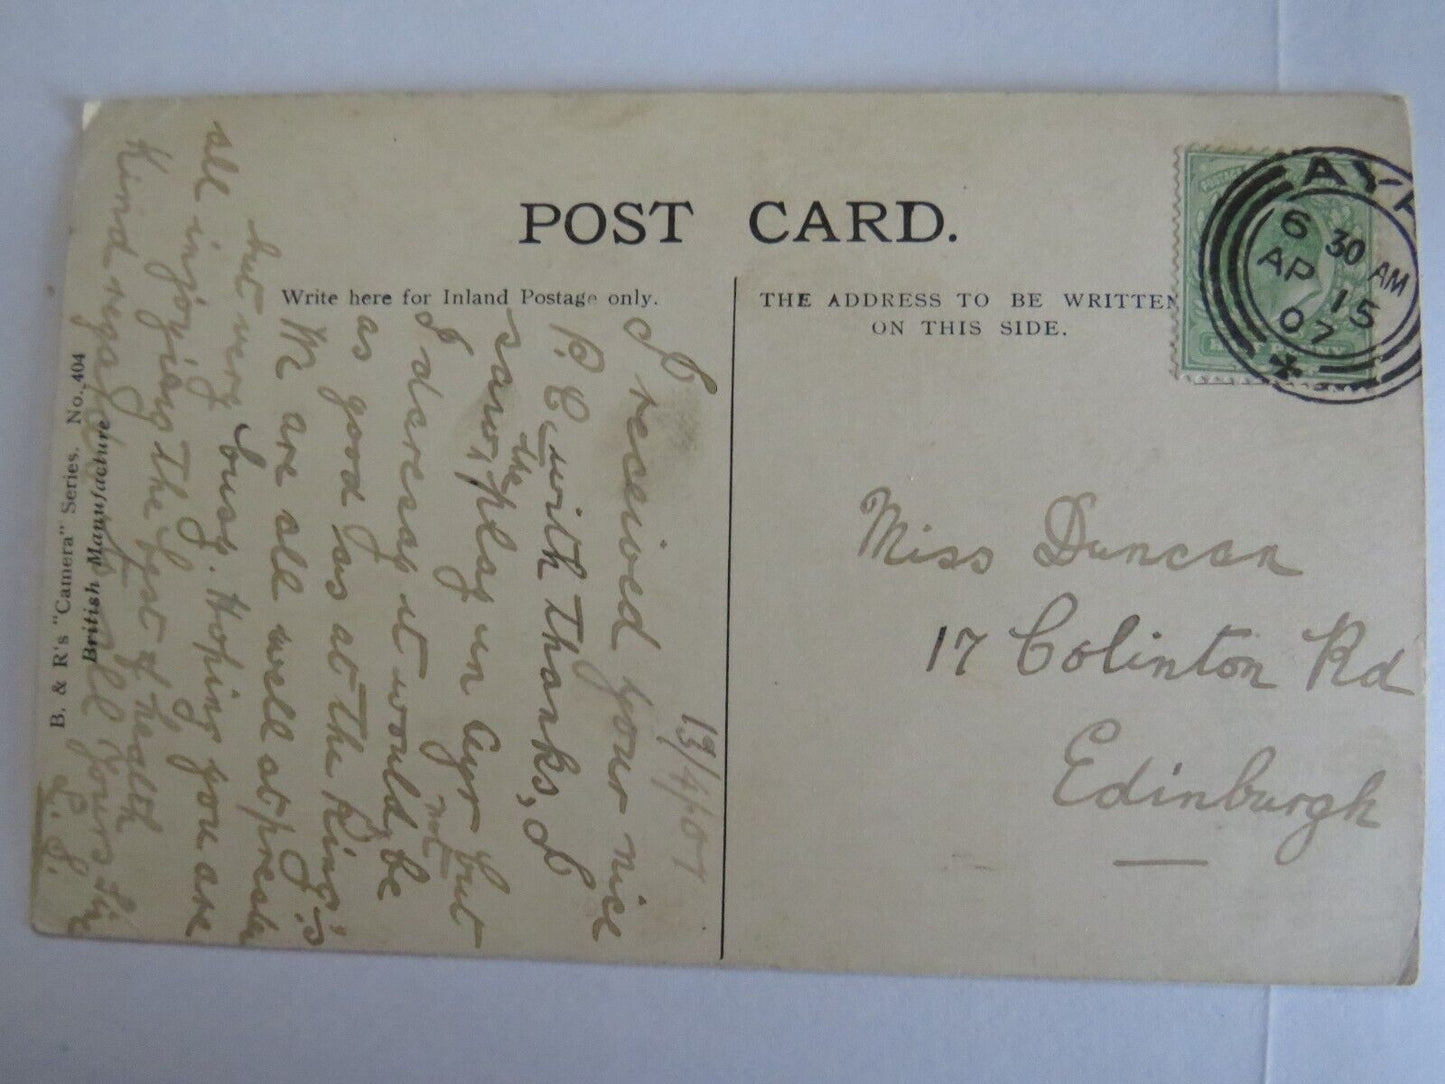 POST CARD.
Write here for Inland Postage only.
THE ADDRESS TO BE WRITTEN
ON THIS SIDE.
AYR
6 30 AM
AP 15
07
Miss Duncan
17 Colinton Rd
Edinburgh
13/4/07
I received your nice
P.C. with thanks, I
saw the play in Ayr but
I daresay it would not be
as good as at the King's
We are all well at present
but very busy. Hoping you are
all injoying the best of health
Kind regards to all yours Sin
L. S.
B. & R's "Camera" Series. No. 404
British Manufacture